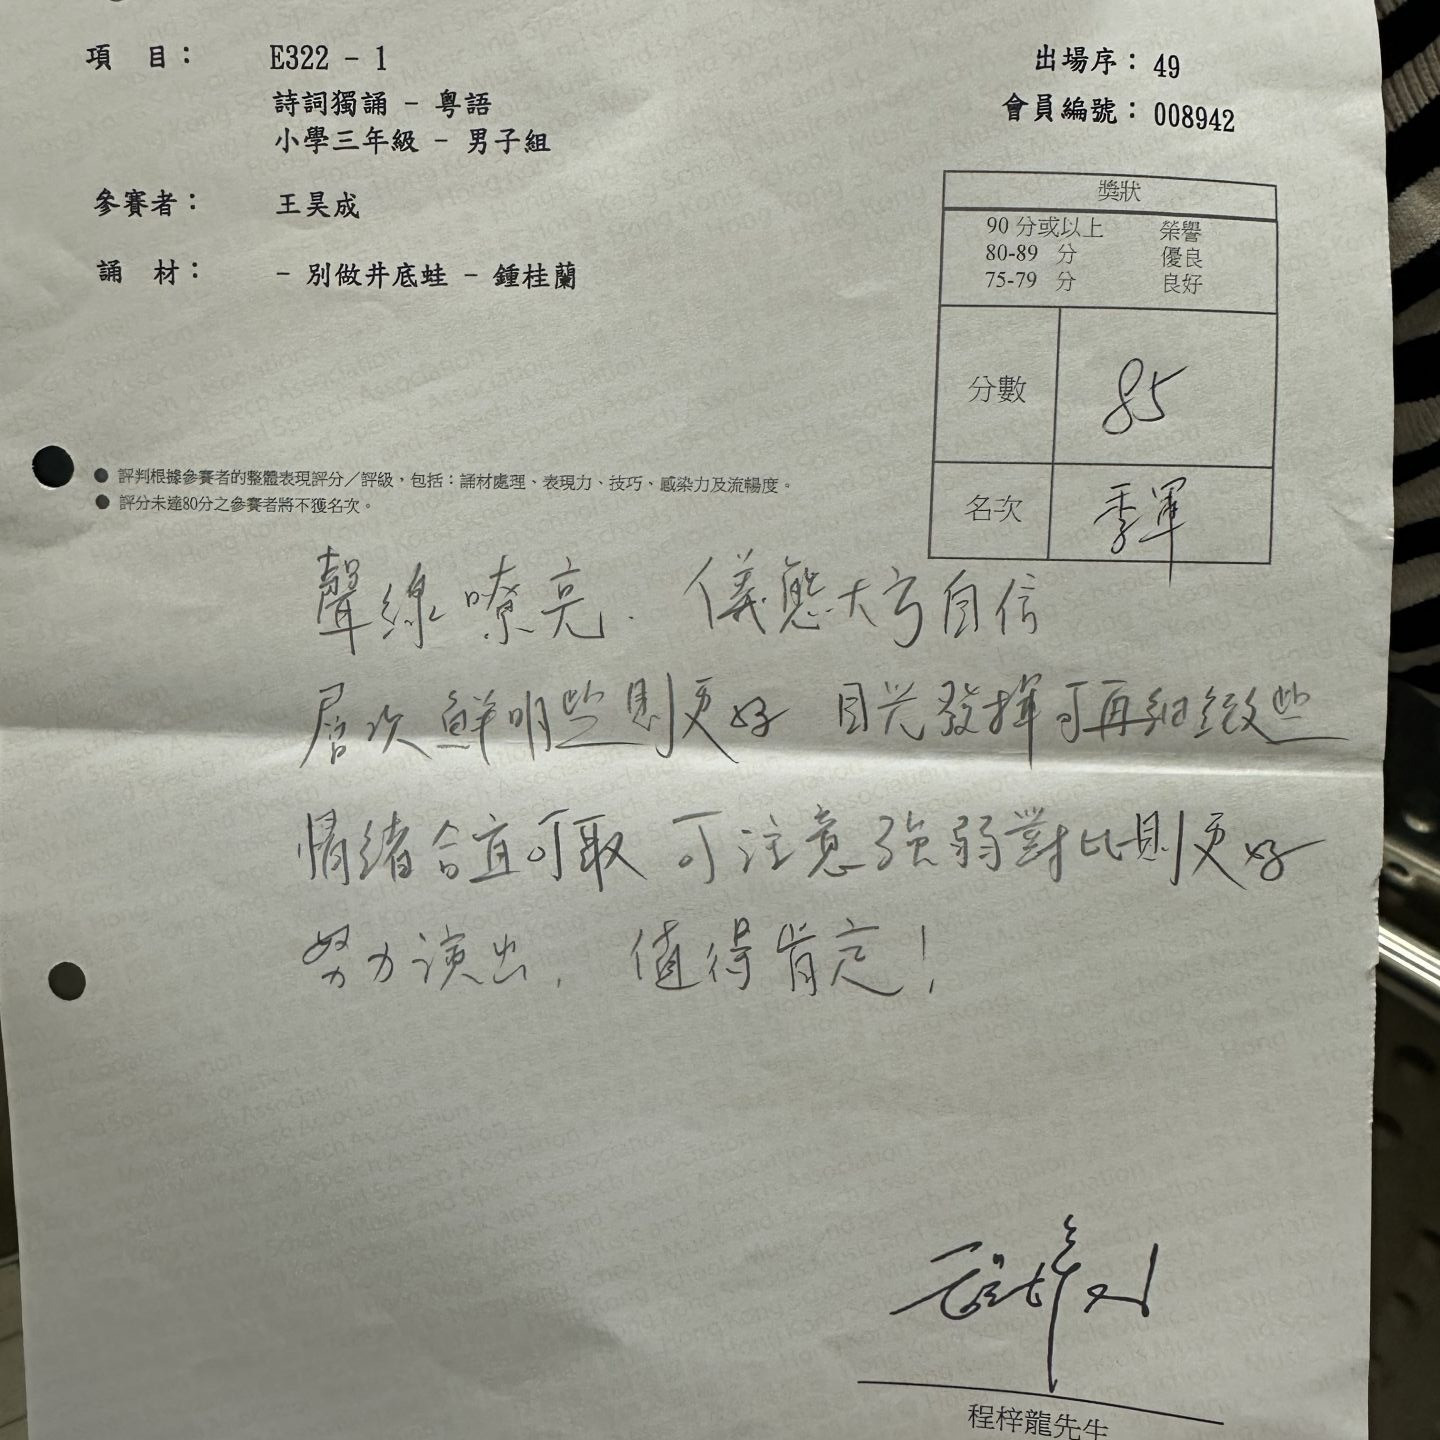 項 目： E322 - 1
詩詞獨誦 - 粵語
小學三年級 - 男子組
出場序： 49
會員編號： 008942
參賽者： 王昊成
誦 材： - 別做井底蛙 - 鍾桂蘭
獎狀
90 分或以上 榮譽
80-89 分 優良
75-79 分 良好
分數 85
名次 季軍
● 評判根據參賽者的整體表現評分／評級，包括：誦材處理、表現力、技巧、感染力及流暢度。
● 評分未達80分之參賽者將不獲名次。
聲線嘹亮. 儀態大方自信
層次鮮明些則更好 目光發揮可再細緻些
情緒合宜可取 可注意強弱對比則更好
努力演出, 值得肯定!
程梓龍先生